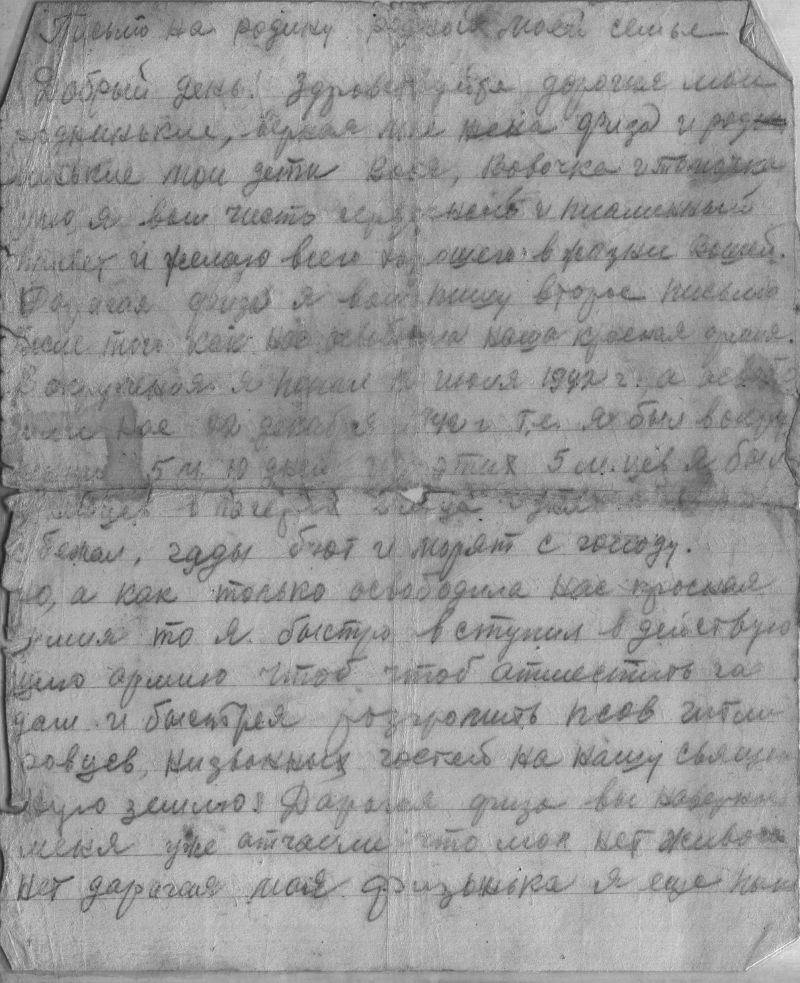 Письмо на родину родной моей семье
Добрый день! Здравствуйте дорогия мои
роднинькие, верная моя жена физа и родн
иские мои дети Вася, Вовочка и томочка
шлю я вам чисто сердечный и пламенный
привет и желаю всего хорошего в жизни Вашей.
Дорагая физа я вам пишу второе письмо
после того как нас освободила наша красная армия.
В окружения я попал 12 июля 1942 г. а освобо
дили нас 22 декабря 1942 г т.е. я был в окру
жении 5 м. 10 дней из этих 5 м.цев я был
в
сбежал, гады бъют и морят с голоду.
но, а как только освободила нас красная
армия то я быстро вступил в действую
щию армию чтоб чтоб атместить га
дам и быстрея розгромить псов гитле
ровцев, низванных гостей на нашу священ
ную землю: Дарагая физа вы наверное
меня уже атчаели что мол нет живова
нет дарагая моя физонька я еще пока